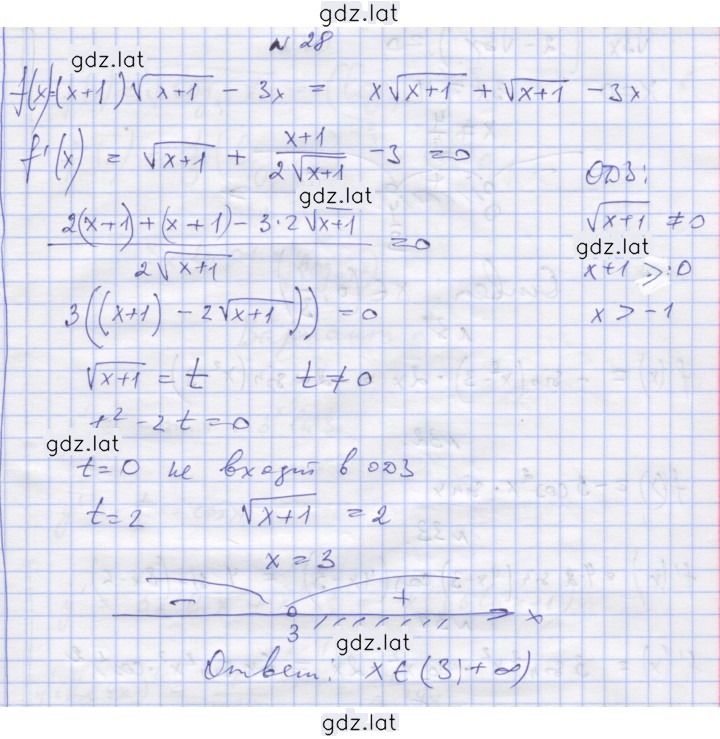 gdz.lat
№ 28
gdz.lat
f(x)=(x+1)√(x+1) - 3x = x√(x+1) + √(x+1) - 3x
f'(x) = √(x+1) + (x+1)/(2√(x+1)) - 3 = 0
ОДЗ:
gdz.lat
(2(x+1)+(x+1)-3·2√(x+1))/(2√(x+1)) = 0
√(x+1) ≠ 0
gdz.lat
x+1 > 0
3((x+1) - 2√(x+1)) = 0
x > -1
√(x+1) = t t ≠ 0
t² - 2t = 0
gdz.lat
t = 0 не входит в ОДЗ
t = 2 √(x+1) = 2
x = 3
- +
3 x
gdz.lat
Ответ: x ∈ (3; +∞)
gdz.lat